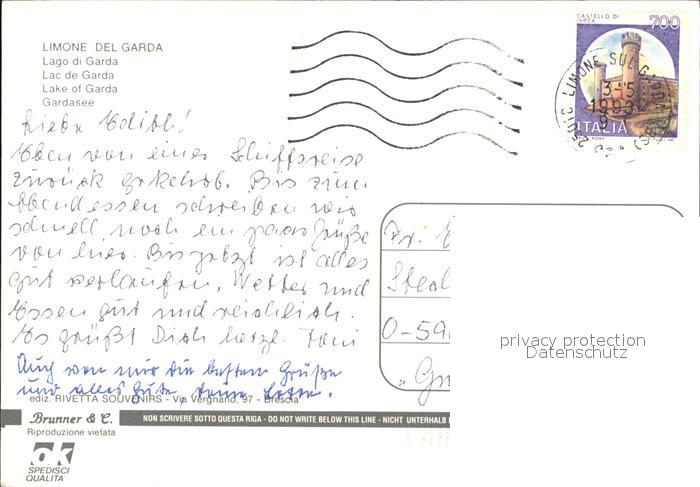 LIMONE DEL GARDA
Lago di Garda
Lac de Garda
Lake of Garda
Gardasee
CASTELLO DI
IVREA
700
ITALIA
ROMA
25010 LIMONE SUL GARDA (BS)
13-5
1993
9
Liebe Edith!
Eben von einer Schiffsreise
zurück gekehrt. Bis zum
Abendessen schreiben wir
schnell noch ein paar Grüße
von hier. Bis jetzt ist alles
gut verlaufen, Wetter und
Essen gut und reichlich.
Es grüßt Dich herzl. Toni
Auch von mir die besten Grüße
und alles Gute, deine
Fr. E
O-59
privacy protection
Datenschutz
ediz. RIVETTA SOUVENIRS - Via Vergnano, 97 - Brescia
Brunner & C.
NON SCRIVERE SOTTO QUESTA RIGA - DO NOT WRITE BELOW THIS LINE - NICHT UNTERHALB
Riproduzione vietata
ok
SPEDISCI
QUALITÀ